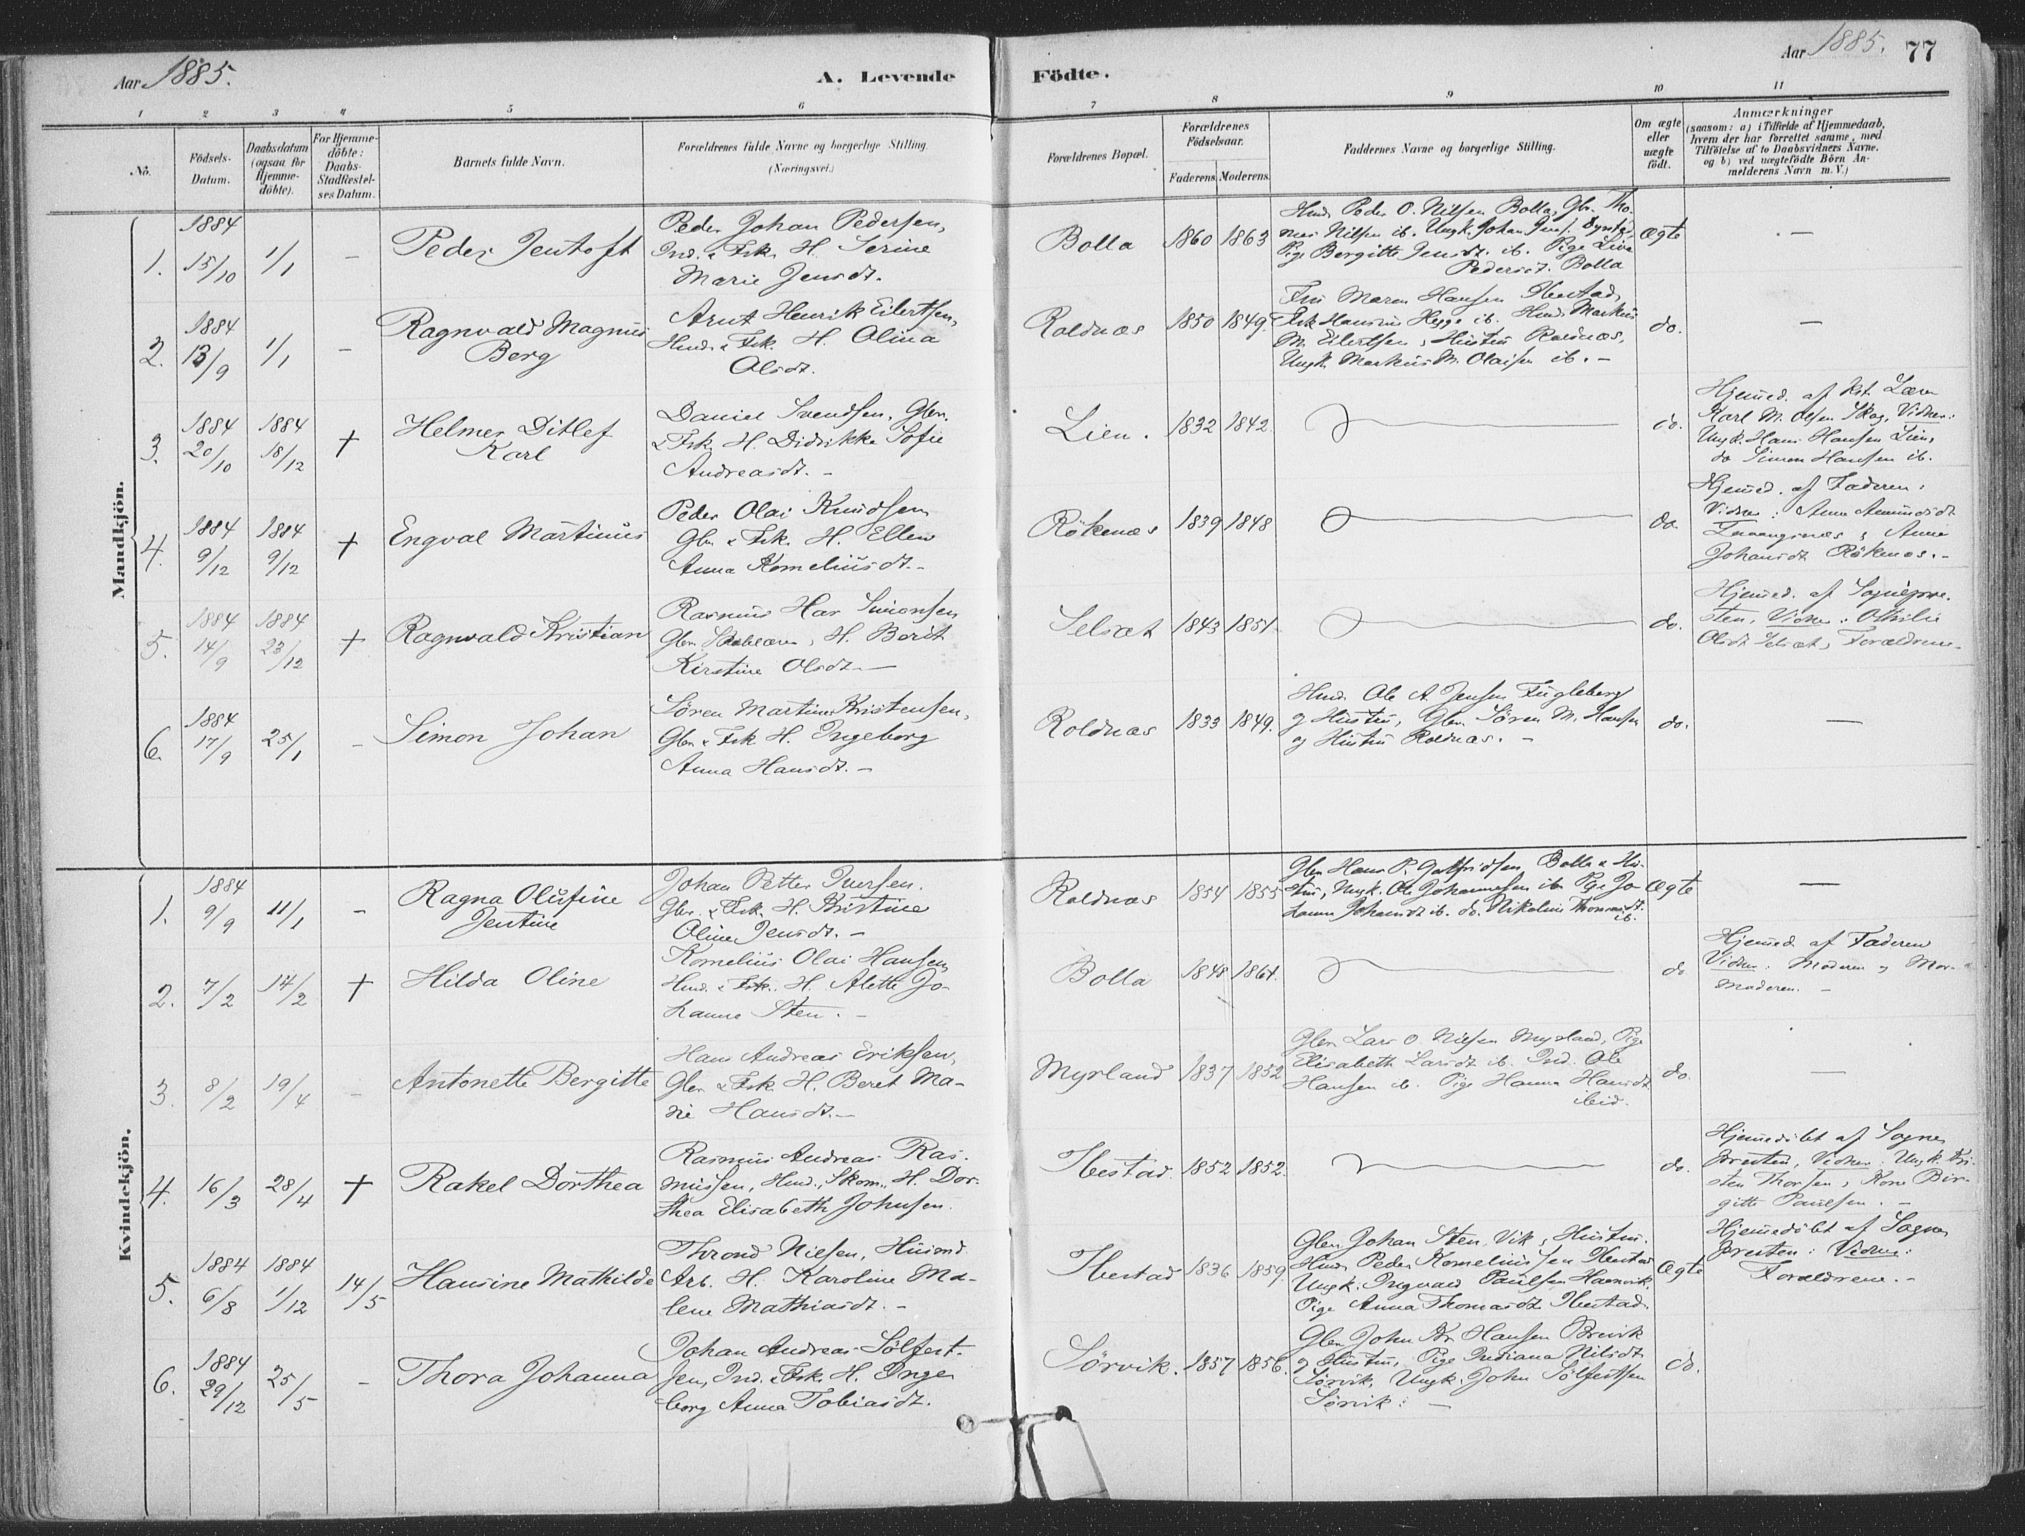 Aar 1885.
A. Levende
Födte.
Aar 1885.
77
1 2 3 4 5 6 7 8 9 10 11
No.
Födsels-Datum.
Daabsdatum (ogsaa for Hjemmedöbte).
For Hjemmedöbte: Daabs-Stadfestelses Datum.
Barnets fulde Navn.
Forældrenes fulde Navne og borgerlige Stilling.
(Næringsvei.)
Forældrenes Bopæl.
Forældrenes Födselsaar.
Faderens. Moderens.
Faddernes Navne og borgerlige Stilling.
Om ægte eller uægte födt.
Anmærkninger
(saasom: a) i Tilfælde af Hjemmedaab,
hvem der har forrettet samme, med
Tilföielse af to Daabsvidners Navne,
og b) ved uægtefödte Börn Anmelderens Navn m. V.)
Mandkjön.
1. 1884 15/10 1/1 - Peder Jentoft
Peder Johan Pedersen,
Ind. & Fsk. H. Serine
Marie Jensdt.
Bolla 1860 1863
Hmd. Peder O. Nilsen Bolla, Gbr. Thomas Nilsen ib. Ungk. Johan
Pige Bergitte Jensdt. ib. Pige
Pedersdt. Bolla
Ægte —
2. 1884 13/9 1/1 - Ragnvald Magnus
Berg
Arnt Henrik Eilertsen,
Hmd. & Fsk. H. Olina
Olsdt.
Roldnæs 1850 1849.
Fru Maren Hansen Ibestad,
Fsk. Hansinus Hegge ib. Hmd. Markus
M. Eilertsen & Hustru Roldnæs,
Ungk. Markus M. Olaisen ib. -
do. —
3. 1884 20/10 1884 18/12 + Helmer Ditlef
Karl
Daniel Svendsen, Gbr.
& Fsk. H. Didrikke Sofie
Andreasdt. -
Lien. 1832 1842.
do.
Hjemmed. af Kst. Lærer
Karl M. Olsen Skog, Vidner:
Ungk. Hans Hansen Lien,
do Simon Hansen ib.
4. 1884 9/12 1884 9/12 + Engval Martinus
Peder Olai Knudsen
Gbr. & Fsk. H. Ellen
Anna Kornelius dt. -
Rökenæs 1839 1848
do.
Hjemmed. af Faderen,
Vidner: Anna Amundsdt
& Anne
Johansdt Rökenæs. -
5. 1884 14/9 1884 23/12 + Ragnvald Kristian
Rasmus Har Simonsen
Gbr. H. Berit
Kirstine Olsdt. -
Selsæt 1843 1851.
do.
Hjemmed. af Sognepresten, Vidner: Othilie
Olsdt Selsæt, Forældrene
6. 1884 17/9 25/1 - Simon Johan
Sören Martinus Kristensen,
Gbr. & Fsk. H. Ingeborg
Anna Hansdt. -
Roldnæs 1833 1849.
Hmd. Ole A. Jensen Fugleberg
og Hustru, Gbr. Sören M. Hansen
og Hustru Roldnæs. -
do. —
Kvindekjön.
1. 1884 9/9 11/1 - Ragna Olufine
Jentine
Johan Petter Iversen.
Gbr. & Fsk. H. Kristine
Oline Jensdt. -
Roldnæs 1854 1855
Gbr. Hans P. Gotfridsen, Bolla & Hustru, Ungk. Ole Johannesen ib. Pige Johanna Johansdt ib. do. Nikoline Thomasdt.
ib.
Ægte —
2. 7/2 14/2 + Hilda Oline
Kornelius Olai Hansen
Hmd. & Fsk. H. Alette Johanne Sten. -
Bolla 1848. 1861.
do
Hjemmed. af Faderen
Vidner: Moderen og Mormoderen. -
3. 8/2 19/4 - Antonette Bergitte
Hans Andreas Eriksen,
Gbr. & Fsk. H. Beret Marie Hansdt. -
Myrland 1837 1852
Gbr. Lars O. Nilsen Myrland, Pige
Elisabeth Larsdt ib. Ind. Ole
Hansen ib. Pige Hanna Hansdt
ibid.
do. —
4. 16/3 28/4 + Rakel Dorthea
Rasmus Andreas Rasmussen, Hmd., Skom., H. Dorthea Elisabeth Johnsen.
Ibestad 1852 1852.
do.
Hjemmedöbt af Sognepresten, Vidner: Ungk. Kristen Thorsen, Kone Birgitte Paulsen. -
5. 1884 6/8 1884 1/12 14/5 Hansine Mathilde
Thrond Nielsen, Husmd.
Arb. H. Karoline Malene Mathiasdt. -
Ibestad 1836 1859.
Gbr. Johan Sten, Vik, Hustru.
Hmd. Peder Korneliussen Ibestad
Ungk. Ingvald Paulsen Hamnvik,
Pige Anna Thomasdt Ibestad.
Ægte
Hjemmedöbt af Sognepresten: Vidner:
Forældrene. -
6. 1884 29/12 25/5 - Thora Johanna
Johan Andreas Sölfestsen, Ind. & Fsk. H. Ingeborg Anna Tobiasdt.
Sörvik. 1857 1856.
Gbr. John Kr. Hansen Breivik
og Hustru, Pige Indiana Nilsdt
Sörvik, Ungk. John Sölfestsen
Sörvik. -
do.